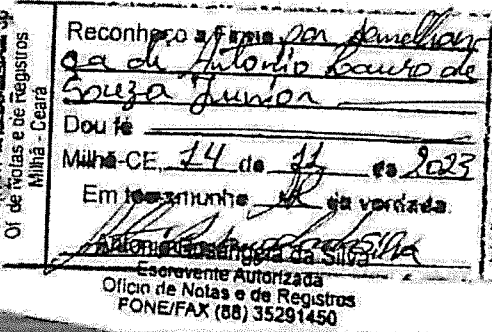 Of de Notas e de Registros
Milhã - Ceará
Reconheço a Firma por semelhan-
ça de Antonio Lauro de
Souza Junior
Dou fé
Milhã-CE, 14 de 11 de 2023
Em testemunho da verdade.
da Silva
Escrevente Autorizada
Ofício de Notas e de Registros
FONE/FAX (88) 35291450